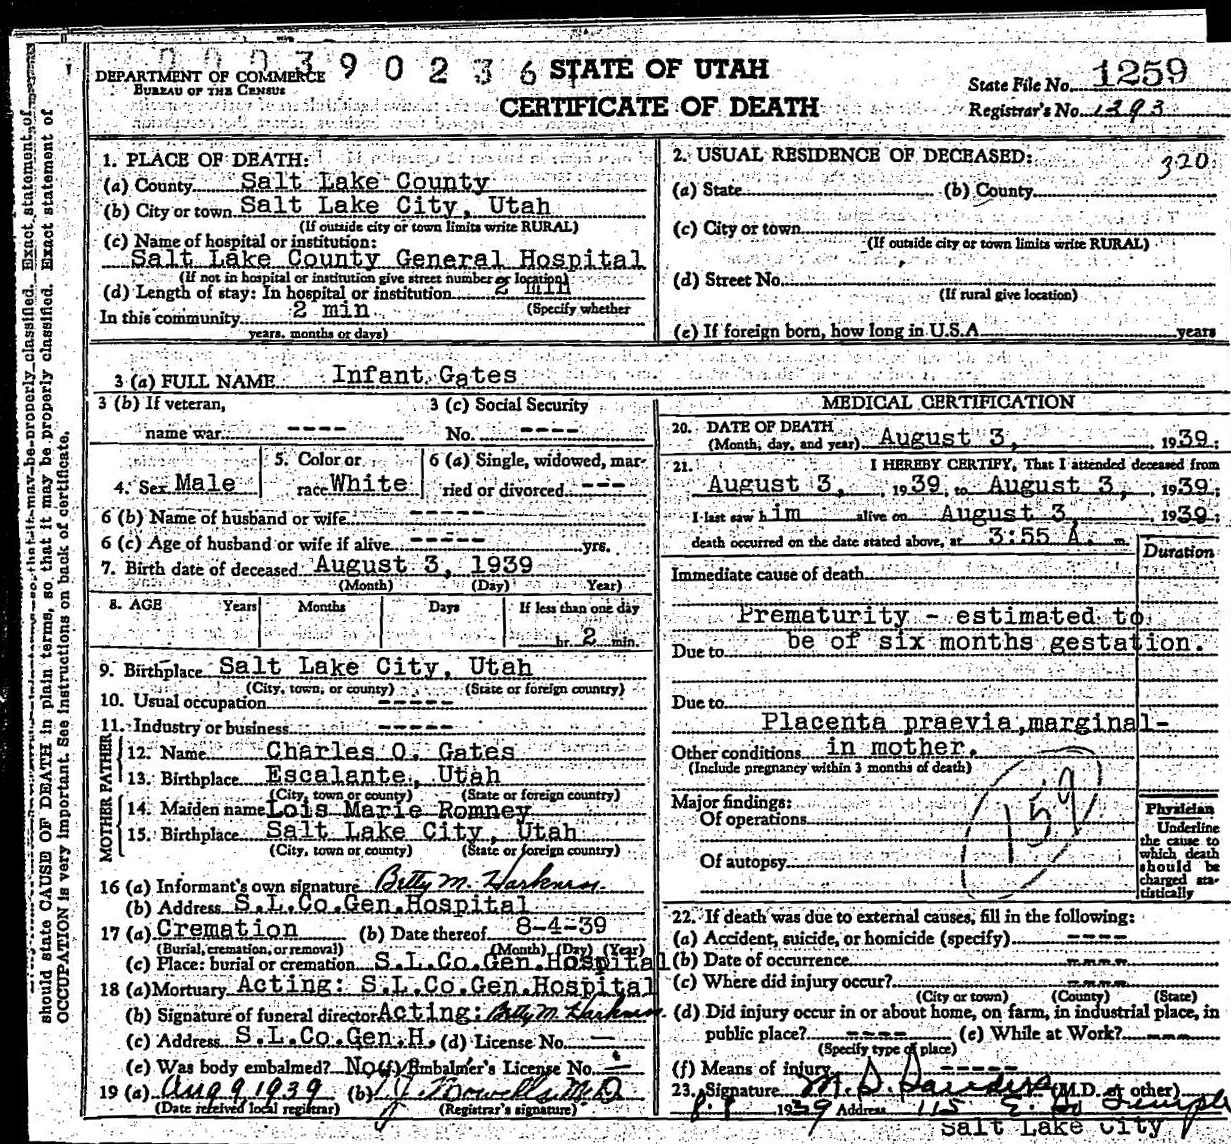 00039023 6
DEPARTMENT OF COMMERCE
BUREAU OF THE CENSUS
STATE OF UTAH
CERTIFICATE OF DEATH
State File No. 1259
Registrar's No. 1293
should state CAUSE OF DEATH in plain terms, so that it may be properly classified. Exact statement of
OCCUPATION is very important. See instructions on back of certificate.
1. PLACE OF DEATH:
(a) County Salt Lake County
(b) City or town Salt Lake City, Utah
(If outside city or town limits write RURAL)
(c) Name of hospital or institution:
Salt Lake County General Hospital
(If not in hospital or institution give street number or location)
(d) Length of stay: In hospital or institution 2 min
(Specify whether
In this community 2 min
years, months or days)
2. USUAL RESIDENCE OF DECEASED: 320
(a) State (b) County
(c) City or town
(If outside city or town limits write RURAL)
(d) Street No.
(If rural give location)
(e) If foreign born, how long in U.S.A. years
3 (a) FULL NAME Infant Gates
3 (b) If veteran,
name war ----
3 (c) Social Security
No. ----
4. Sex Male
5. Color or
race White
6 (a) Single, widowed, mar-
ried or divorced ---
6 (b) Name of husband or wife -----
6 (c) Age of husband or wife if alive ----- yrs.
7. Birth date of deceased August 3, 1939
(Month) (Day) Year)
8. AGE Years Months Days If less than one day
hr. 2 min.
9. Birthplace Salt Lake City, Utah
(City, town, or county) (State or foreign country)
10. Usual occupation -----
11. Industry or business -----
FATHER
12. Name Charles O. Gates
13. Birthplace Escalante, Utah
(City, town or county) (State or foreign country)
MOTHER
14. Maiden name Lois Marie Romney
15. Birthplace Salt Lake City, Utah
(City, town or county) (State or foreign country)
16 (a) Informant's own signature Betty M. Harkness.
(b) Address S.L.Co.Gen.Hospital
17 (a) Cremation (b) Date thereof 8-4-39
(Burial, cremation, or removal) (Month) (Day) (Year)
(c) Place: burial or cremation S.L.Co.Gen.Hospital
18 (a) Mortuary Acting: S.L.Co.Gen.Hospital
(b) Signature of funeral director Acting: Betty M. Harkness.
(c) Address S.L.Co.Gen.H. (d) License No. —
(e) Was body embalmed? No (f) Embalmer's License No. —
19 (a) Aug 9 1939 (b) M.D.
(Date received local registrar) (Registrar's signature)
MEDICAL CERTIFICATION
20. DATE OF DEATH
(Month, day, and year) August 3, 1939.
21. I HEREBY CERTIFY, That I attended deceased from
August 3, 1939, to August 3, 1939,
I last saw him alive on August 3, 1939;
death occurred on the date stated above, at 3:55 A. m.
Duration
Immediate cause of death
Prematurity - estimated to
Due to be of six months gestation.
Due to
Placenta praevia, marginal-
Other conditions in mother.
(Include pregnancy within 3 months of death)
159
Major findings:
Of operations
Of autopsy
Physician
Underline
the cause to
which death
should be
charged sta-
tistically
22. If death was due to external causes, fill in the following:
(a) Accident, suicide, or homicide (specify) ----
(b) Date of occurrence ----
(c) Where did injury occur? ----
(City or town) (County) (State)
(d) Did injury occur in or about home, on farm, in industrial place, in
public place? ---- (e) While at Work? ----
(Specify type of place)
(f) Means of injury -----
23. Signature M. S. Sanders (M.D. or other)
1939 Address 115 E. So Temple
Salt Lake City